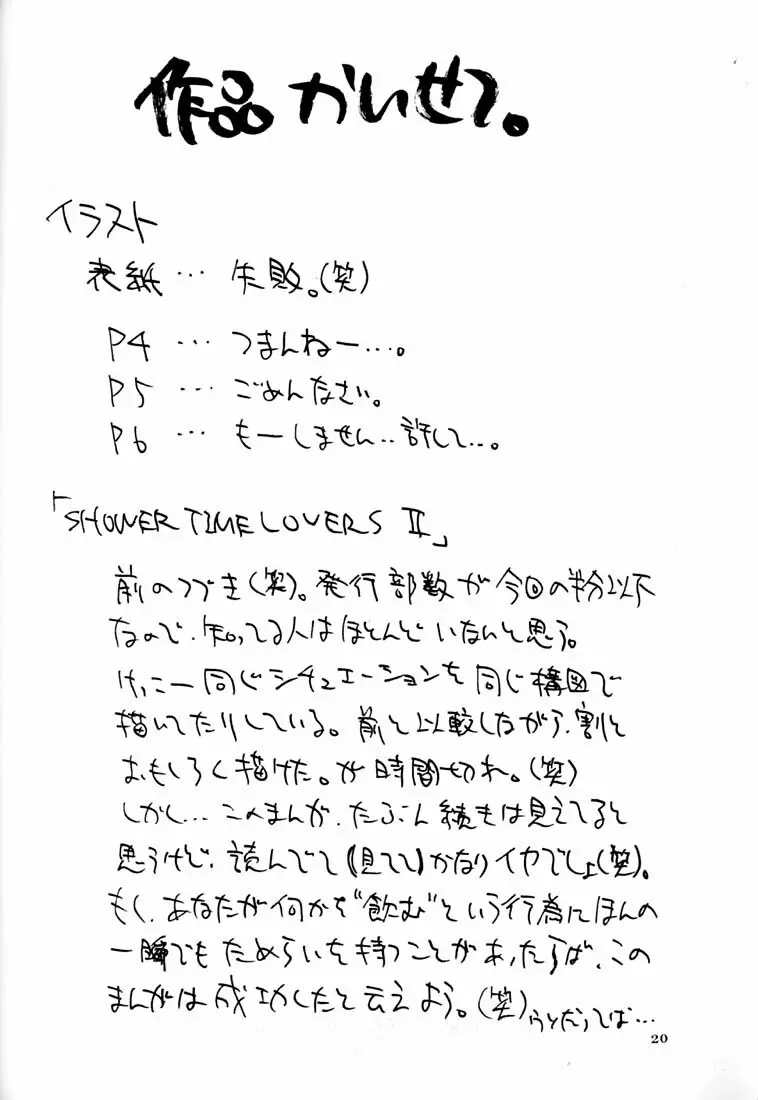 作品かいせつ。
イラスト
表紙…失敗。(笑)
P4…つまんねー…。
P5…ごめんなさい。
P6…もーしません..許して...。
「SHOWER TIME LOVERS Ⅱ」
前のつづき(笑)。発行部数が今回の半分以下
なので、知ってる人はほとんどいないと思う。
けっこー同じシチュエーションを同じ構図で
描いてたりしている。前と比較しながら、割と
おもしろく描けた。が時間切れ。(笑)
しかし…このまんが、たぶん続きは見えてると
思うけど、読んでて(見てて)かなりイヤでしょ(笑)。
もし、あなたが何かを"飲む"という行為にほんの
一瞬でもためらいを持つことがあったらば、この
まんがは成功したと云えよう。(笑)うそだってば…
20